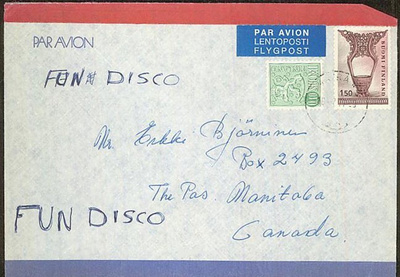 PAR AVION
PAR AVION
LENTOPOSTI
FLYGPOST
SUOMI-FINLAND
1.50
FUN DISCO
Mr Erkki Björninen
Box 2493
The Pas Manitoba
Canada
FUN DISCO